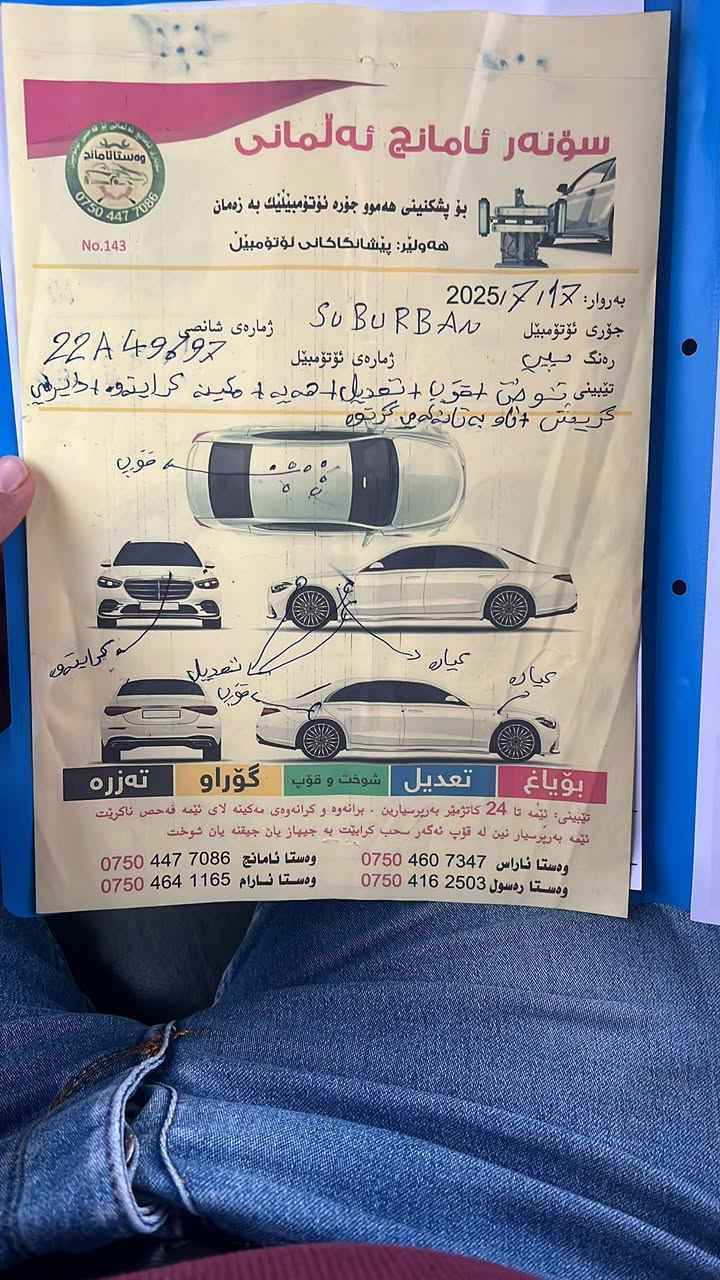 سۆنەر ئامانج ئەڵمانی
وەستائامانج
0750 447 7086
بۆ پشکنینی هەموو جۆرە ئۆتۆمبێلێک بە زەمان
No.143
هەولێر: پێشانگاکانی لۆتۆمبێڵ
بەروار: 2025/7/17
جۆری ئۆتۆمبێل SUBURBAN ژمارەی شانصی
رەنگ سپی ژمارەی ئۆتۆمبێل 22A 49697
تێبینی شوخت + قۆپ + تعدیل + هەیە + مکینە کرایتەوە +
قۆپ
کرایتەوە
تعدیل
عیارە
عیارە
قۆپ
بۆیاغ تعدیل شوخت و قۆپ گۆراو تەزرە
تێبینی: ئێمە تا 24 کاتژمێر بەرپرسیارین . برانەوە و کرانەوەی مەکینە لای ئێمە فەحص ناکرێت
ئێمە بەرپرسیار نین لە قۆپ ئەگەر سحب کرابێت بە جیهاز یان جیقنە یان شوخت
وەستا ئاراس 0750 460 7347 وەستا ئامانج 0750 447 7086
وەستا رەسول 0750 416 2503 وەستا ئارام 0750 464 1165